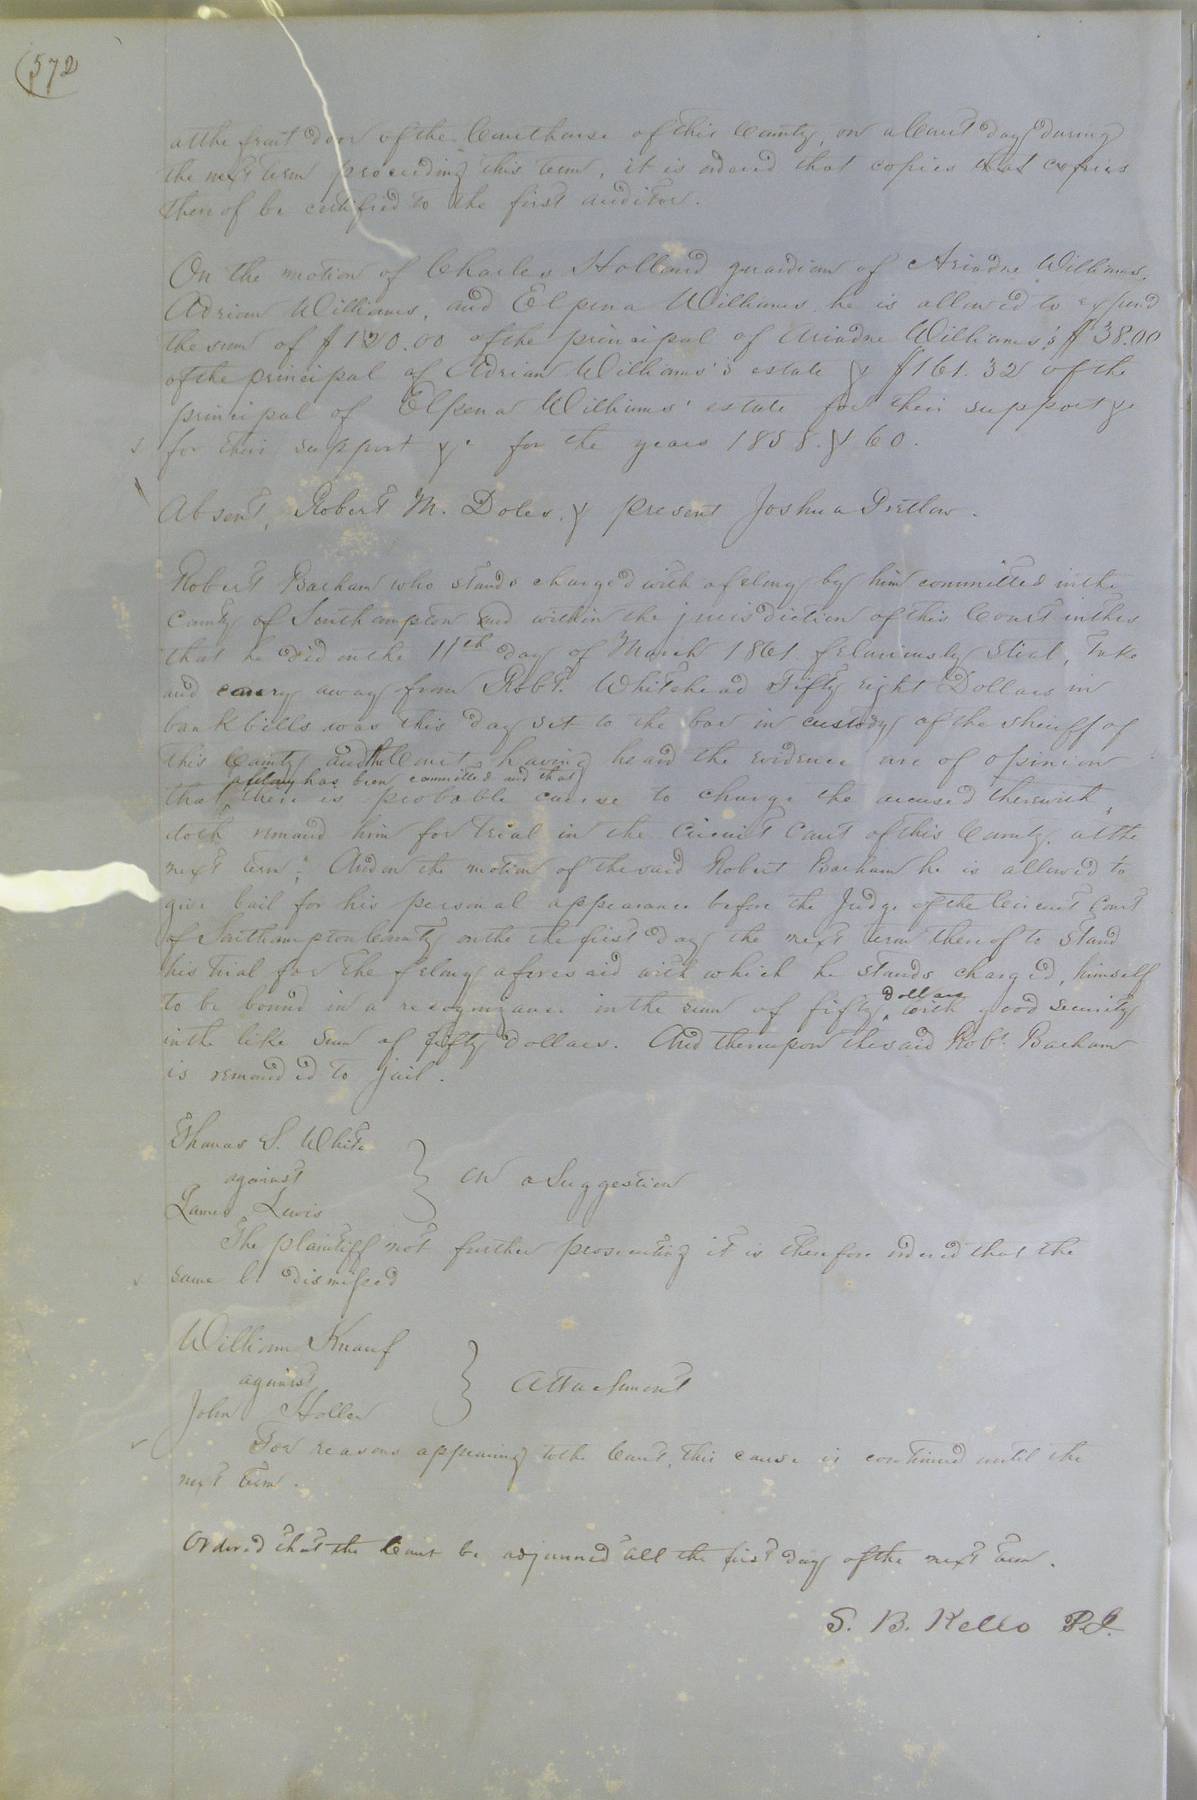 572
at the front door of the Courthouse of this County, on a Court day during
the next term proceeding this term, it is ordered that copies that copies
thereof be certified to the first auditor.
On the motion of Charles Holland guardian of Ariadne Williams,
Adrian Williams, and Elpena Williams he is allowed to expend
the sum of $120.00 of the principal of Ariadne Williams's $38.00
of the principal of Adrian Williams's estate & $161.32 of the
principal of Elpena Williams' estate for their support &c
for their support &c for the years 1858. & 60.
Absent, Robert M. Doles. & present Joshua Pretlow.
Robert Barham who stands charged with a felony by him committed in the
County of Southampton and within the jurisdiction of this Court in this
that he did on the 11th day of March 1861 feloniously Steal, Take
and carry away from Robt. Whitehead Fifty eight Dollars in
bank bills was this day set to the bar in custody of the sheriff of
this County and the Court having heard the evidence are of opinion
a felony has been committed and that
that there is probable cause to charge the accused therewith,
doth remand him for trial in the Circuit Court of this County, at the
next term; And on the motion of the said Robert Barham he is allowed to
give bail for his personal appearance before the Judge of the Circuit Court
of Southampton County on the the first day the next term thereof to stand
his trial for the felony aforesaid with which he stands charged, himself
dollars
to be bound in a recognizance in the sum of fifty with good security
in the like sum of fifty dollars. And thereupon the said Robt. Barham
is remanded to jail.
Thomas S. White
against } On a Suggestion
James Lewis
The plaintiff not further prosecuting it is therefore ordered that the
same be dismissed
William Knauf
against } Attachment
John Holler
For reasons appearing to the Court, this cause is continued until the
next term.
Ordered that the Court be adjourned till the first day of the next term.
S. B. Kello P.J.